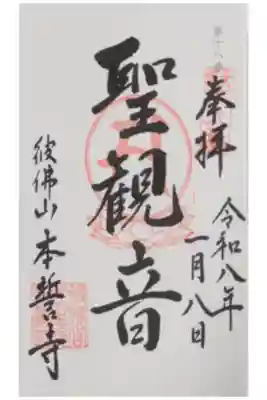 奉拝
令和八年
一月八日
聖観音
彼佛山 本誓寺